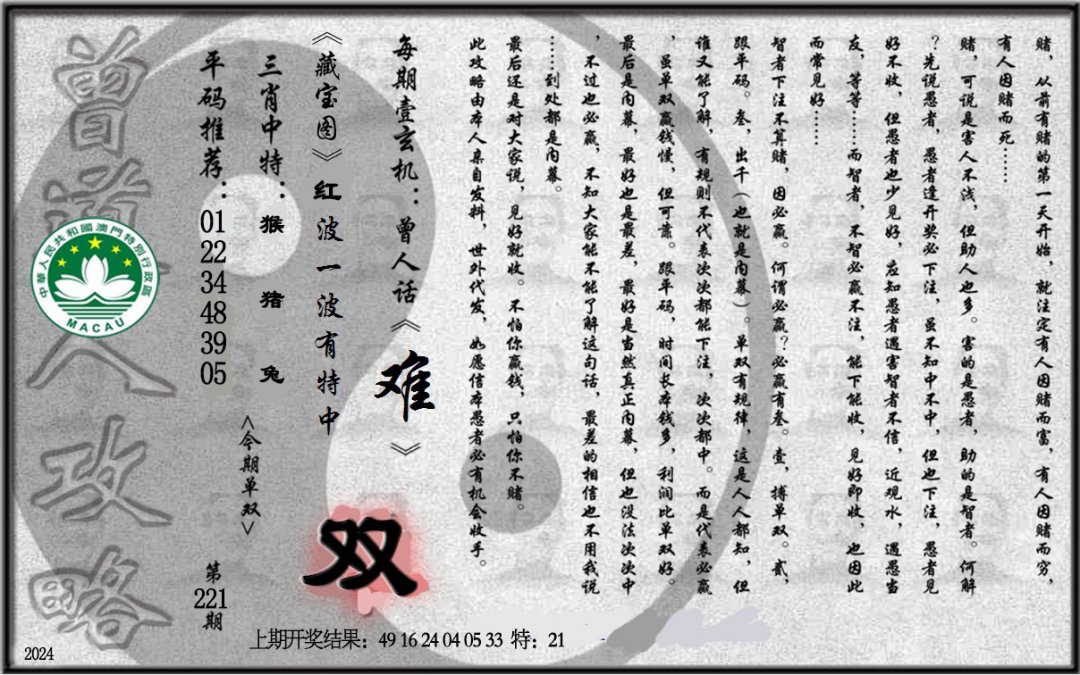 赌，从前有赌的第一天开始，就注定有人因赌而富，有人因赌而穷，
有人因赌而死……
赌，可说是害人不浅，但助人也多。害的是愚者，助的是智者。何解
？先说愚者，愚者逢开奖必下注，虽不知中不中，但也下注，愚者见
好不收，但愚者也少见好，应知愚者遇害智者不信，近观水，遇愚当
友，等等……而智者，不智必赢不注，能下能收，见好即收，也因此
而常见好……
智者下注不算赌，因必赢。何谓必赢？必赢有叁。壹，搏单双。贰，
跟平码。叁，出千（也就是内幕）。单双有规律，这是人人都知，但
谁又能了解，有规则不代表次次都能下注，次次都中。而是代表必赢
，虽单双赢钱慢，但可靠。跟平码，时间长本钱多，利润比单双好。
最后是内幕，最好也是最差，最好是当然真正内幕，但也没法次次中
，不过也必赢，不知大家能不能了解这句话，最差的相信也不用我说
……到处都是内幕。
最后还是对大家说，见好就收。不怕你赢钱，只怕你不赌。
此攻略由本人亲自发料，世外代发，如愿信本愚者必有机会收手。
每期壹玄机：曾人话《难》
《藏宝图》红波一波有特中
三肖中特：猴 猪 兔
平码推荐：01 22 34 48 39 05
<今期单双>
双
第221期
曾道人攻略
中華人民共和國澳門特別行政區
MACAU
上期开奖结果：49 16 24 04 05 33 特：21
2024